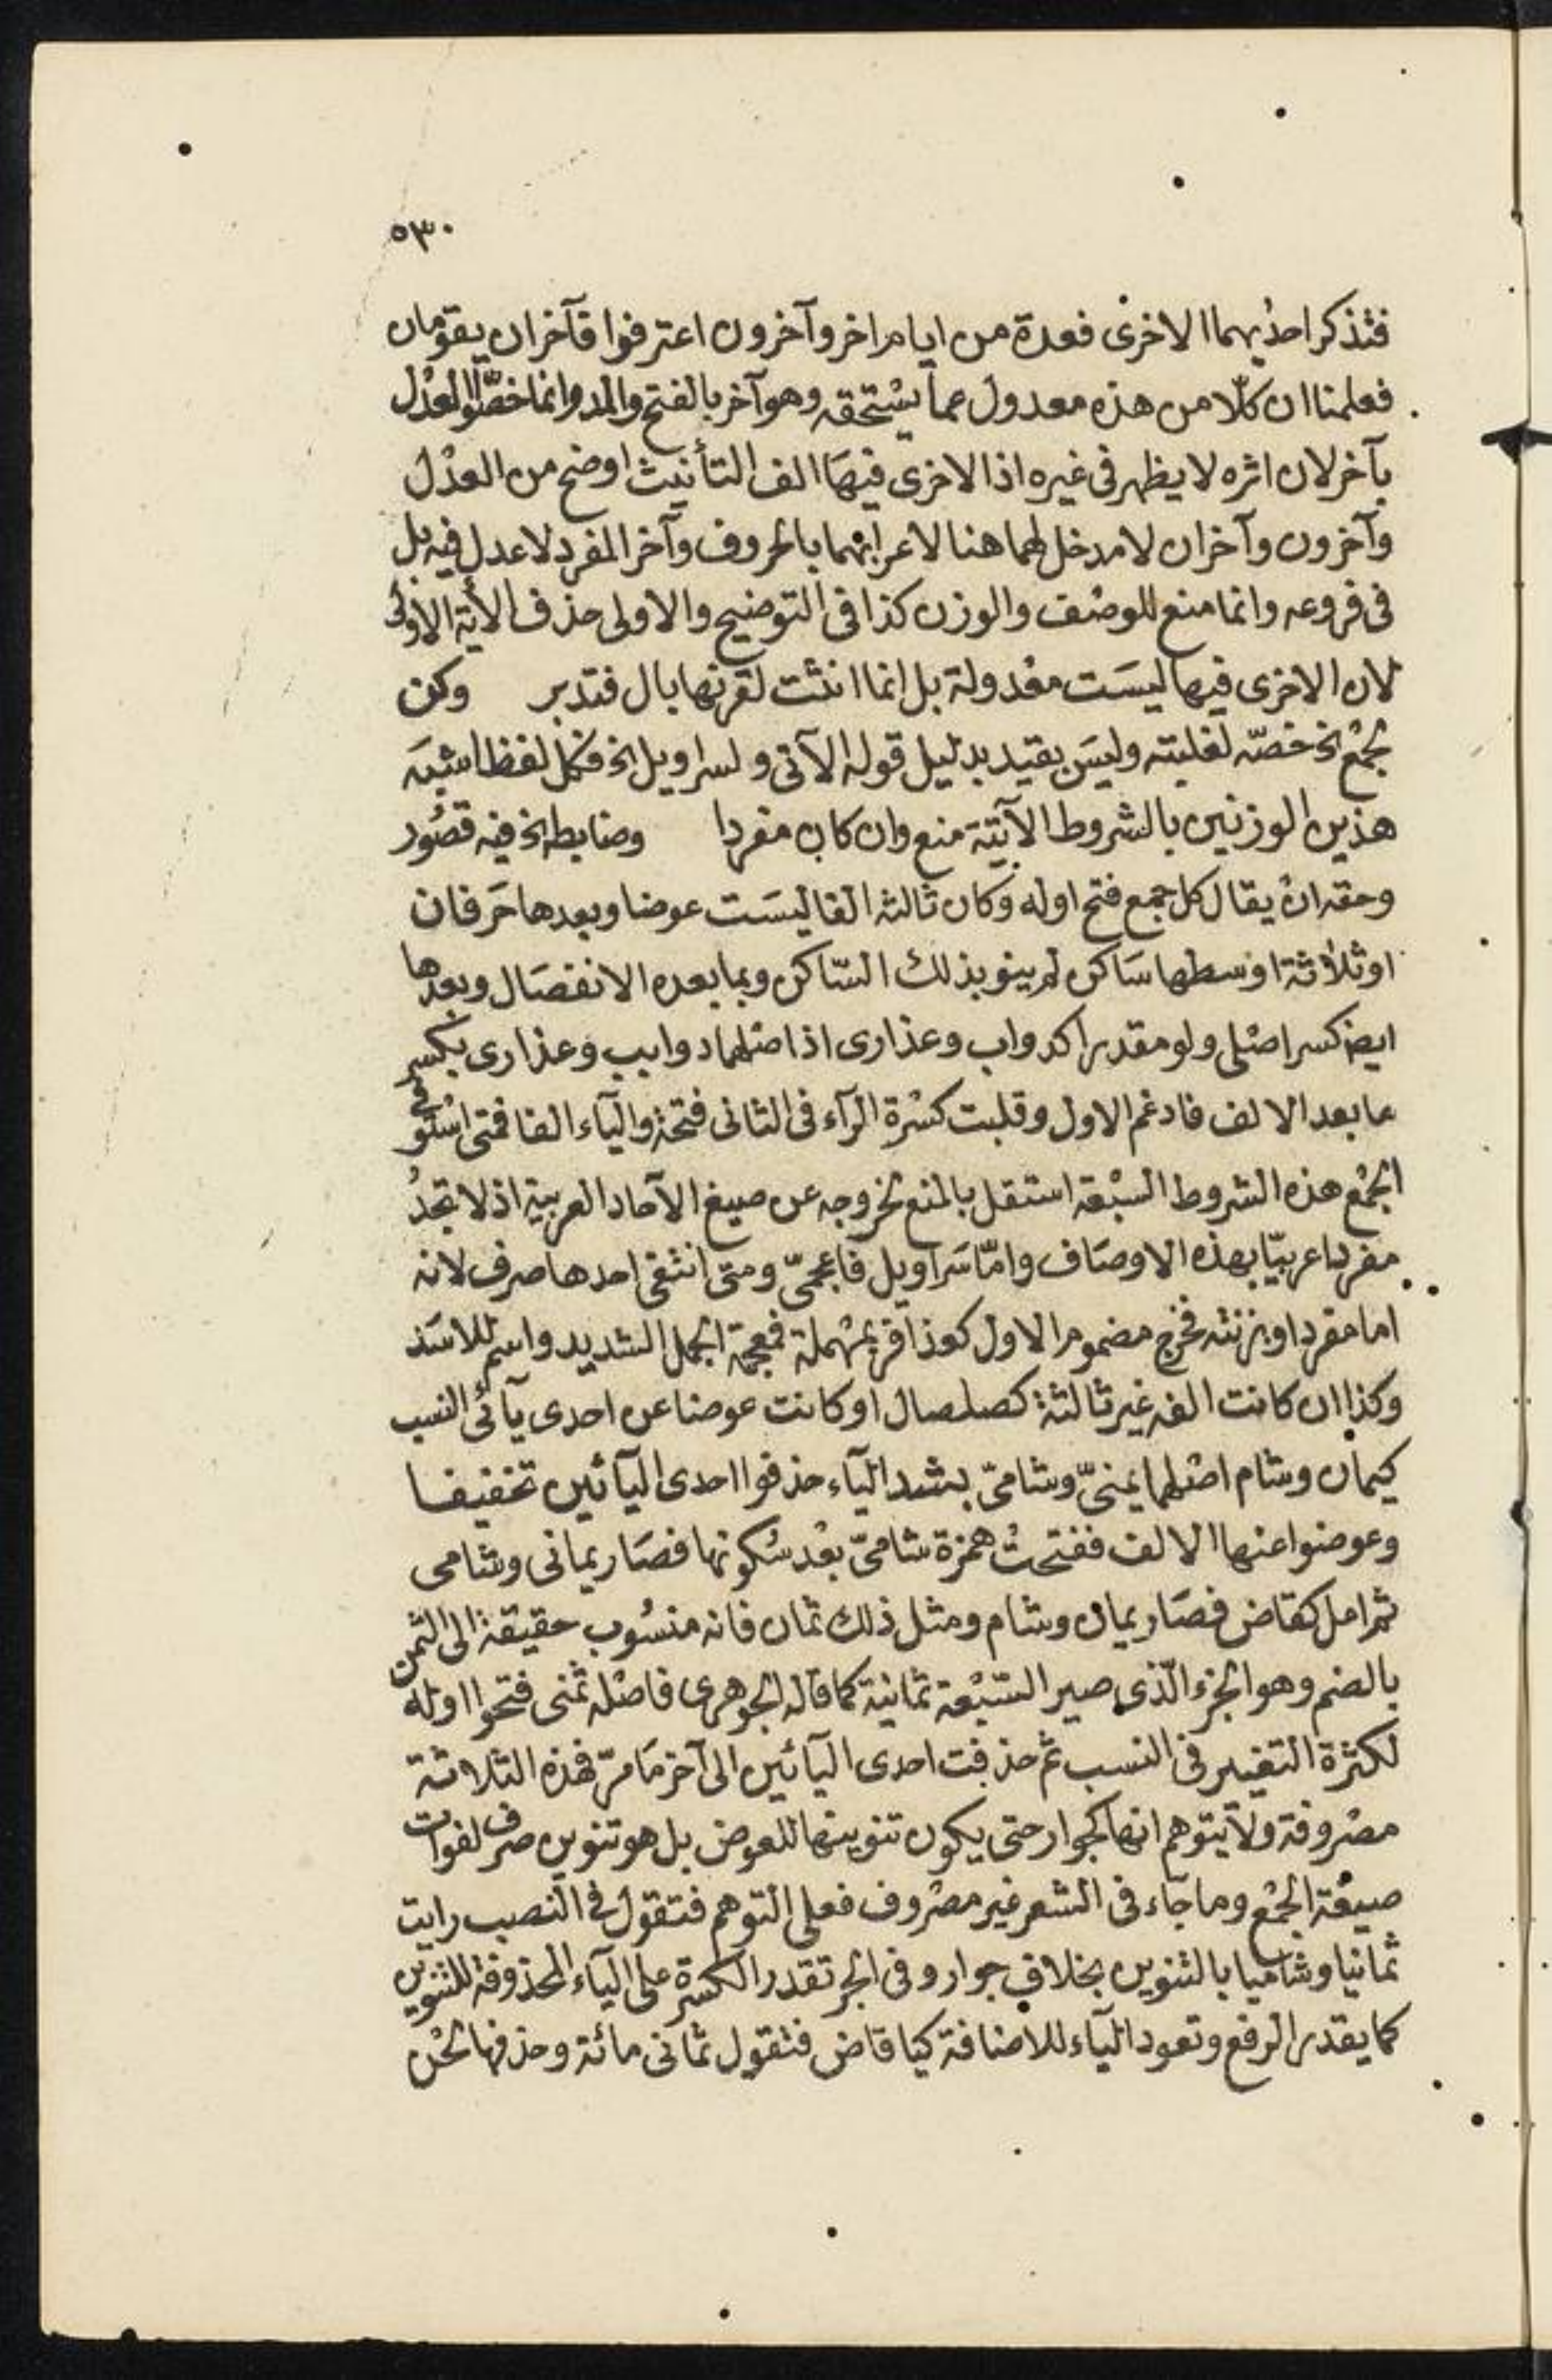 ٥٣٠
فتذكر احديهما الاخرى فعدة من ايام اخر وآخرون اعترفوا فآخران يقومان
فعلمنا ان كلّا من هذه معدول عما يستحقه وهو آخر بالفتح والمد وانما خصّوا العدل
بآخر لان اثره لا يظهر فى غيره اذ الاخرى فيها الف التأنيث اوضح من العدل
وآخرون وآخران لا مدخل لهما هنا لاعرابهما بالحروف وآخر المفرد لا عدل فيه بل
فى فروعه وانما منع للوصف والوزن كذا فى التوضيح والاولى حذف الأية الاولى
لان الاخرى فيها ليست معدولة بل انما انثت لقرنها بال فتدبر وكن
لجمع الخ خصّه لغلبته وليس بقيد بدليل قوله الآتى ولسراويل الخ فكل لفظ اشبه
هذين الوزنين بالشروط الآتية منع وان كان مفردا وضابطه الخ فيه قصور
وحقه ان يقال كل جمع فتح اوله وكان ثالثه الفا ليست عوضا وبعدها حرفان
او ثلاثة اوسطها ساكن لم ينو بذلك الساكن وبما بعده الانفصال وبعدها
ايضا كسر اصلى ولو مقدرا كدواب وعذارى اذ اصلهما دوابب وعذارى بكسر
ما بعد الالف فادغم الاول وقلبت كسرة الرآء فى الثانى فتحة والياء الفا فمتى استوفى
الجمع هذه الشروط السبعة استقل بالمنع لخروجه عن صيغ الآحاد العربية اذ لا تجد
مفردا عربيّا بهذه الاوصاف وامّا سراويل فاعجمىّ ومتى انتفى احدها صرف لانه
اما مفرد او بزنته فخرج مضموم الاول كعذافر بمهملة فمعجمة الجمل الشديد واسم للاسد
وكذا ان كانت الفه غير ثالثة كصلصال او كانت عوضا عن احدى يآئى النسب
كيمان وشام اصلهما يمنىّ وشامىّ بشد اليآء حذفوا احدى اليآئين تخفيفا
وعوضوا عنها الالف ففتحت همزة شامىّ بعد سكونها فصار يمانى وشامى
ثم اعل كقاض فصار يمان وشام ومثل ذلك ثمان فانه منسوب حقيقة الى الثمن
بالضم وهو الجزء الّذى صير السّبعة ثمانية كما قاله الجوهرى فاصله ثمنى فتحوا اوله
لكثرة التغيير فى النسب ثم حذفت احدى اليآئين الى آخر ما مرّ فهذه الثلاثة
مصروفة ولا يتوهم انها كجوار حتى يكون تنوينها للعوض بل هو تنوين صرف لفوات
صيغة الجمع وما جآء فى الشعر غير مصروف فعلى التوهم فتقول فى النصب رايت
ثمانيا وشاميا بالتنوين بخلاف جوار وفى الجر تقدر الكسرة على اليآء المحذوفة للتنوين
كما يقدر الرفع وتعود اليآء للاضافة كيا قاض فتقول ثمانى مائة وحذفها لحن